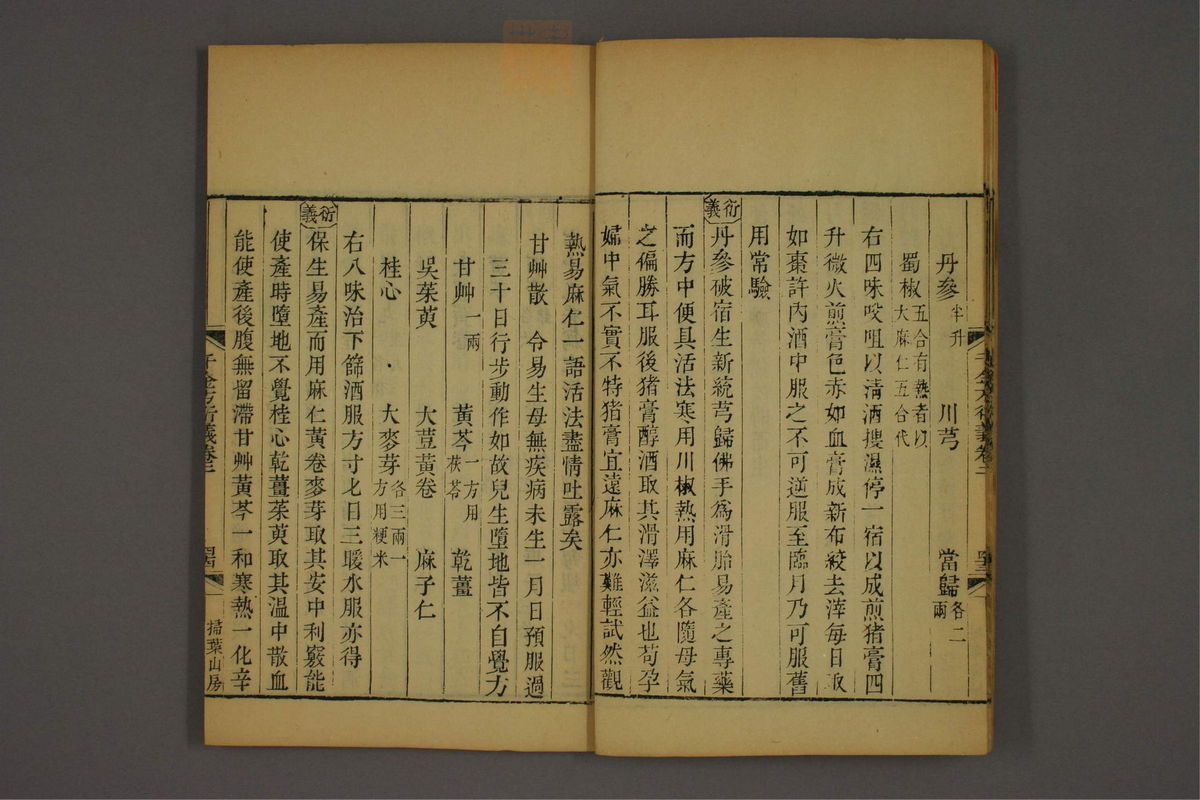 丹參半升　川芎　當歸各二兩
蜀椒五合有熱者以大麻仁五合代
右四味㕮咀以清酒搜濕停一宿以成煎猪膏四
升微火煎膏色赤如血膏成新布絞去滓每日取
如棗許內酒中服之不可逆服至臨月乃可服舊
用常驗
衍義
丹參破宿生新統芎歸佛手為滑胎易產之專藥
而方中便具活法寒用川椒熱用麻仁各隨母氣
之偏勝耳服後猪膏醇酒取其滑澤滋益也苟孕
婦中氣不實不特猪膏宜遠麻仁亦難輕試然觀
熱易麻仁一語活法盡情吐露矣
甘艸散　令易生母無疾病未生一月日預服過
三十日行步動作如故兒生墮地皆不自覺方
甘艸一兩　黃芩一方用茯苓　乾薑
吳茱萸　大荳黃卷　麻子仁
桂心　大麥芽各三兩一方用粳米
右八味治下篩酒服方寸匕日三暖水服亦得
衍義
保生易產而用麻仁黃卷麥芽取其安中利竅能
使產時墮地不覺桂心乾薑茱萸取其溫中散血
能使產後腹無留滯甘艸黃芩一和寒熱一化辛
千金方衍義卷二
掃葉山房